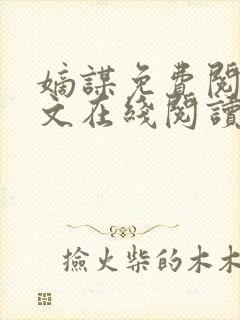 嫡謀免費閱
文在綫閱讀
撿火柴的木木